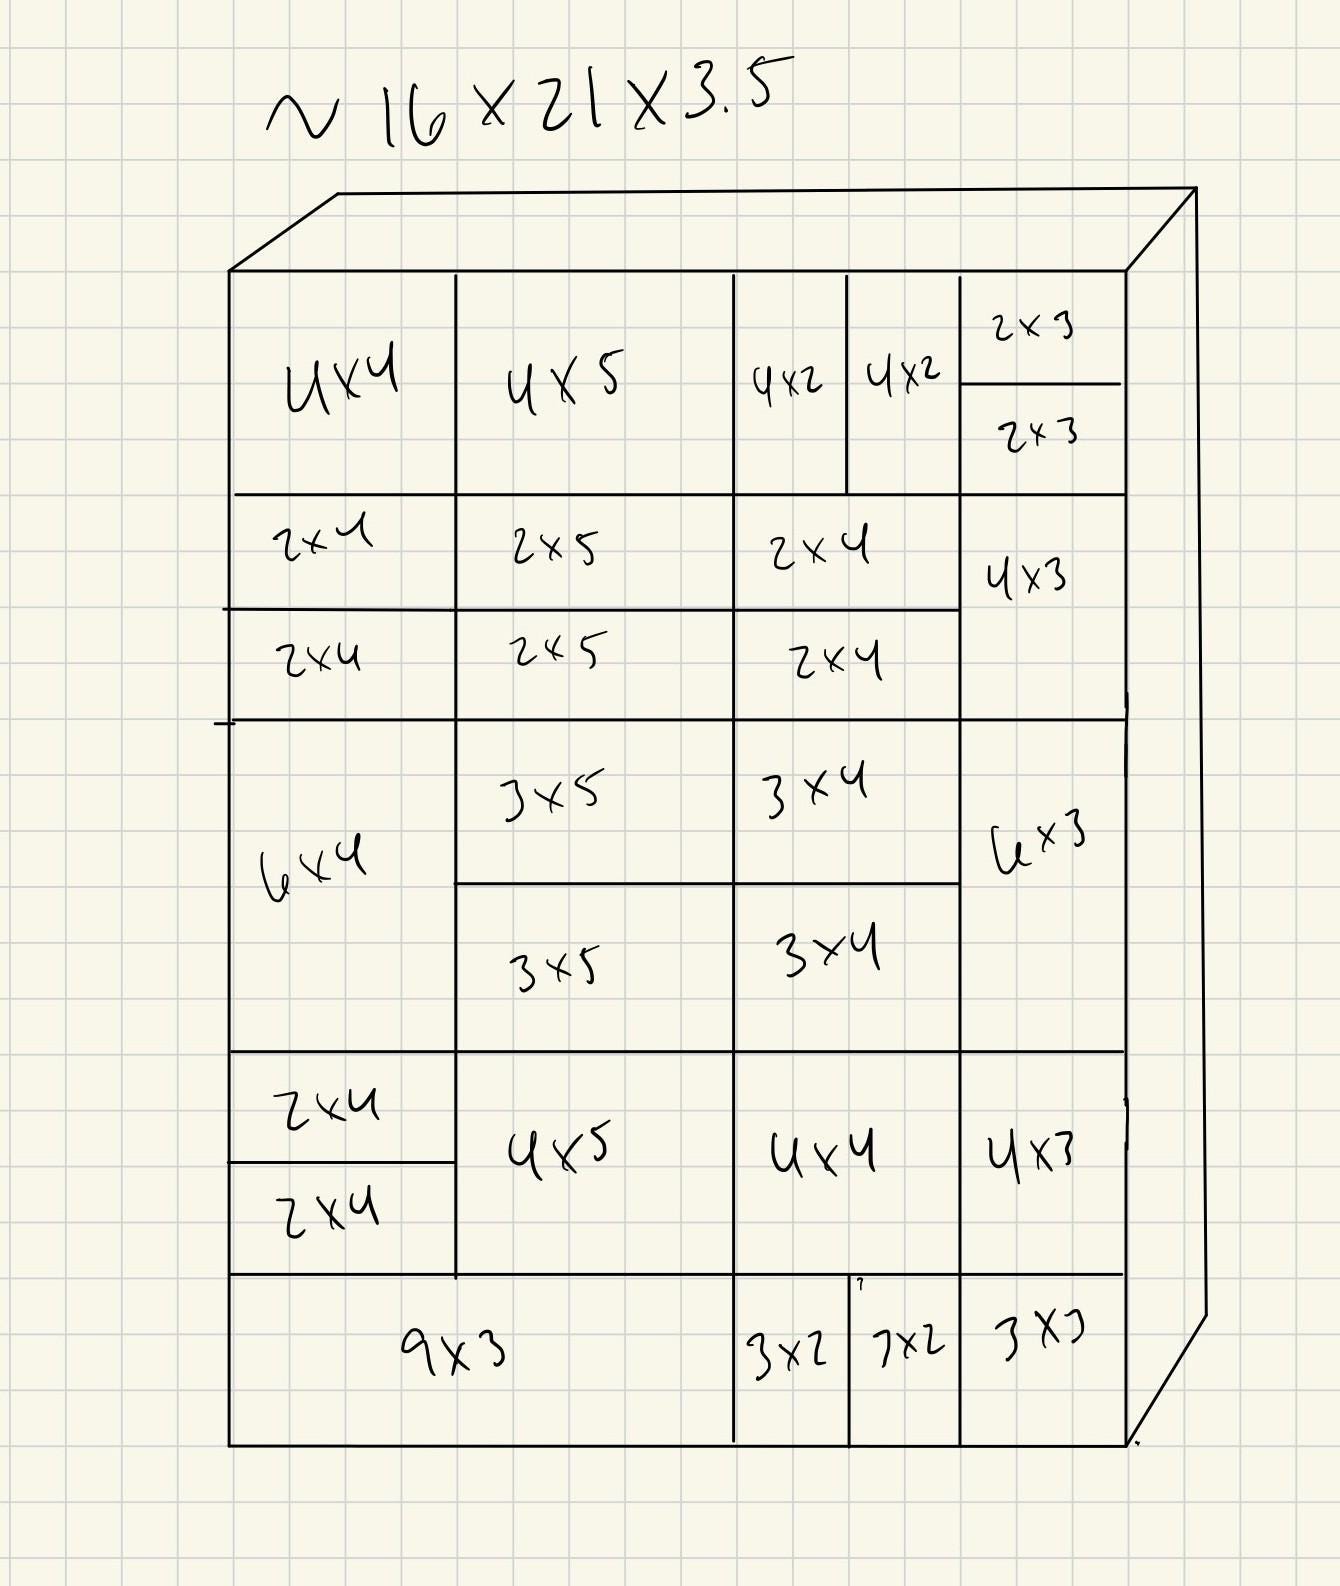 ~ 16 x 21 x 3.5
4x4 4x5 4x2 4x2 2x3
2x3
2x4 2x5 2x4 4x3
2x4 2x5 2x4
6x4 3x5 3x4 6x3
3x5 3x4
2x4 4x5 4x4 4x3
2x4
9x3 3x2 3x2 3x3